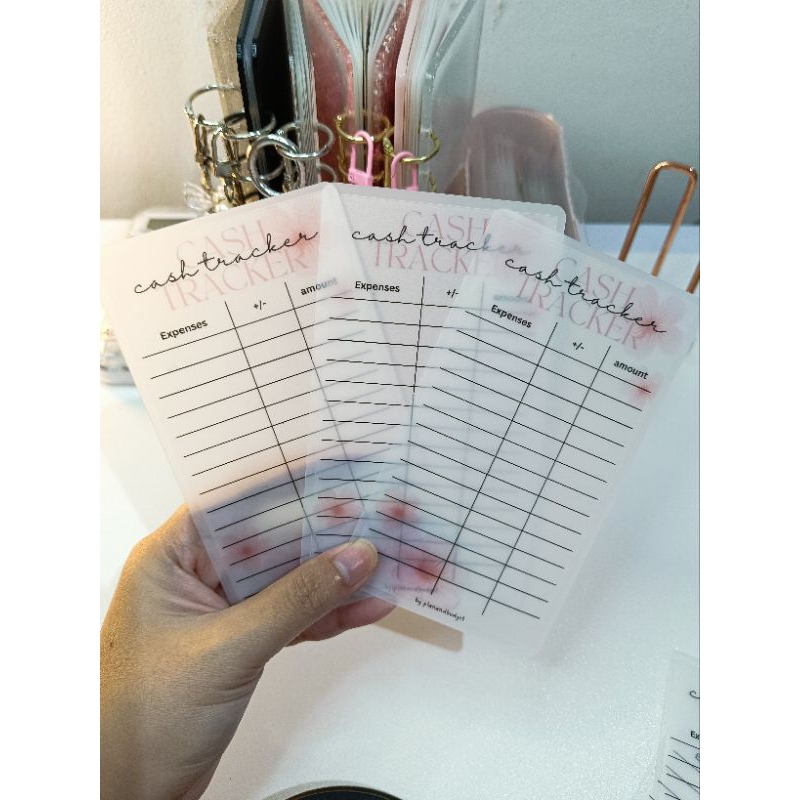 CASH
TRACKER
cash tracker
Expenses +/- amount
CASH
TRACKE
cash tracker
Expenses +/-
CASH
TRACKER
cash tracker
Expenses +/- amount
by planandbudget